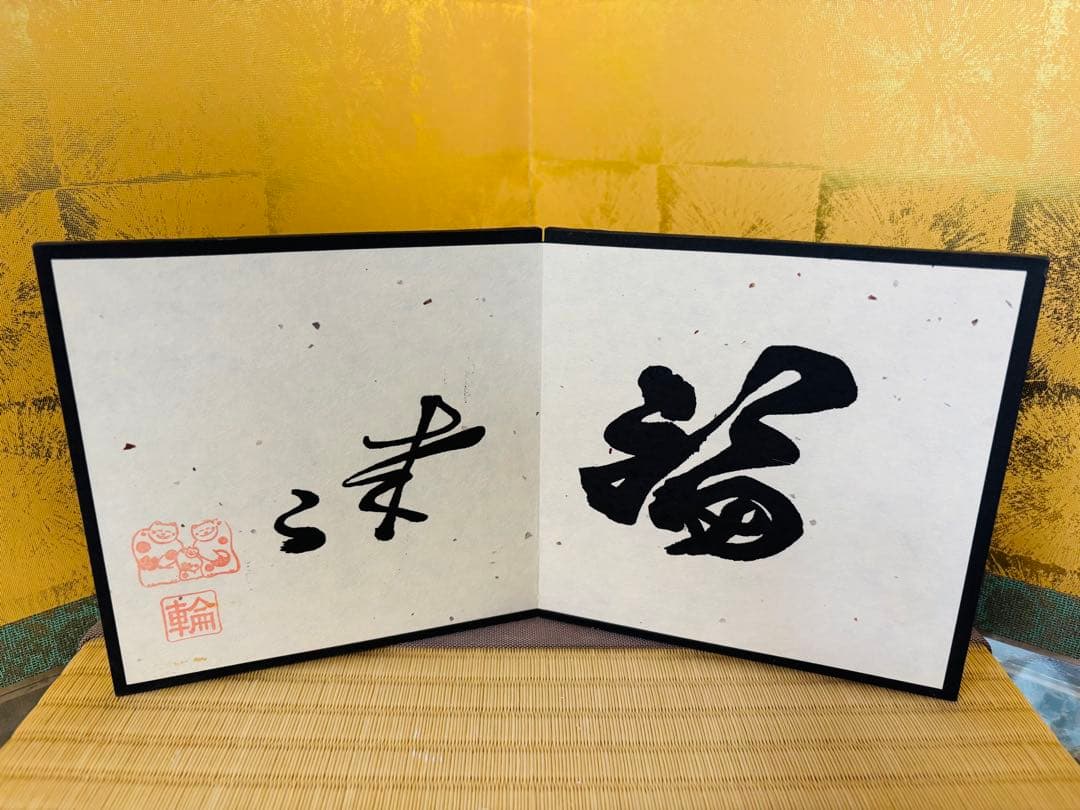 福
来る
輪